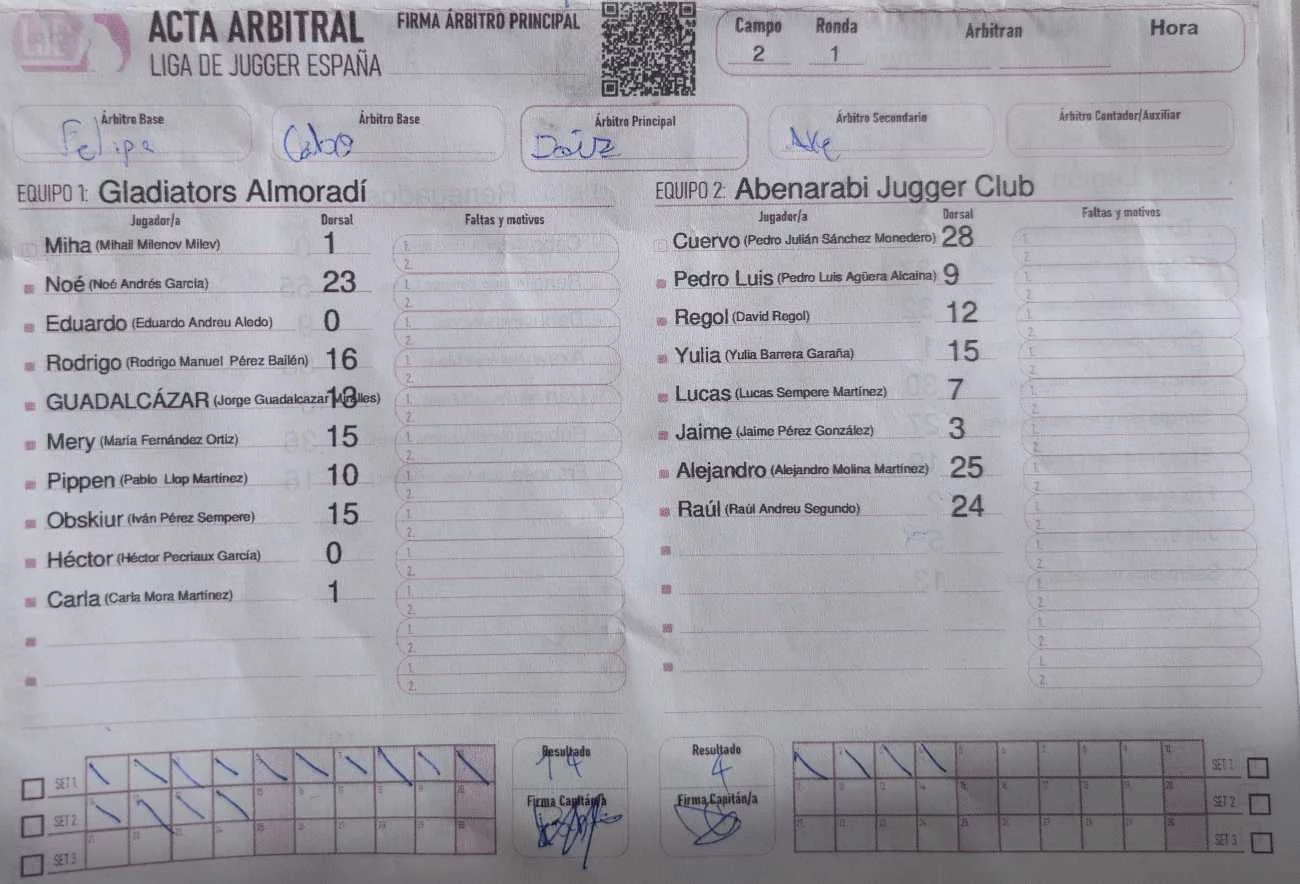 LJE
ACTA ARBITRAL
LIGA DE JUGGER ESPAÑA
FIRMA ÁRBITRO PRINCIPAL
Campo Ronda Arbitran Hora
2 1
Árbitro Base Árbitro Base Árbitro Principal Árbitro Secundario Árbitro Contador/Auxiliar
Felipe Cabo
EQUIPO 1: Gladiators Almoradí
Jugador/a Dorsal Faltas y motivos
Miha (Mihail Milenov Milev) 1
Noé (Noé Andrés García) 23
Eduardo (Eduardo Andreu Aledo) 0
Rodrigo (Rodrigo Manuel Pérez Bailén) 16
GUADALCÁZAR (Jorge Guadalcazar Miralles) 13
Mery (María Fernández Ortiz) 15
Pippen (Pablo Llop Martínez) 10
Obskiur (Iván Pérez Sempere) 15
Héctor (Héctor Pecriaux García) 0
Carla (Carla Mora Martínez) 1
EQUIPO 2: Abenarabi Jugger Club
Jugador/a Dorsal Faltas y motivos
Cuervo (Pedro Julián Sánchez Monedero) 28
Pedro Luis (Pedro Luis Agüera Alcaina) 9
Regol (David Regol) 12
Yulia (Yulia Barrera Garaña) 15
Lucas (Lucas Sempere Martínez) 7
Jaime (Jaime Pérez González) 3
Alejandro (Alejandro Molina Martínez) 25
Raúl (Raúl Andreu Segundo) 24
SET 1
SET 2
SET 3
Resultado
14
Firma Capitán/a
Resultado
4
Firma Capitán/a
SET 1
SET 2
SET 3